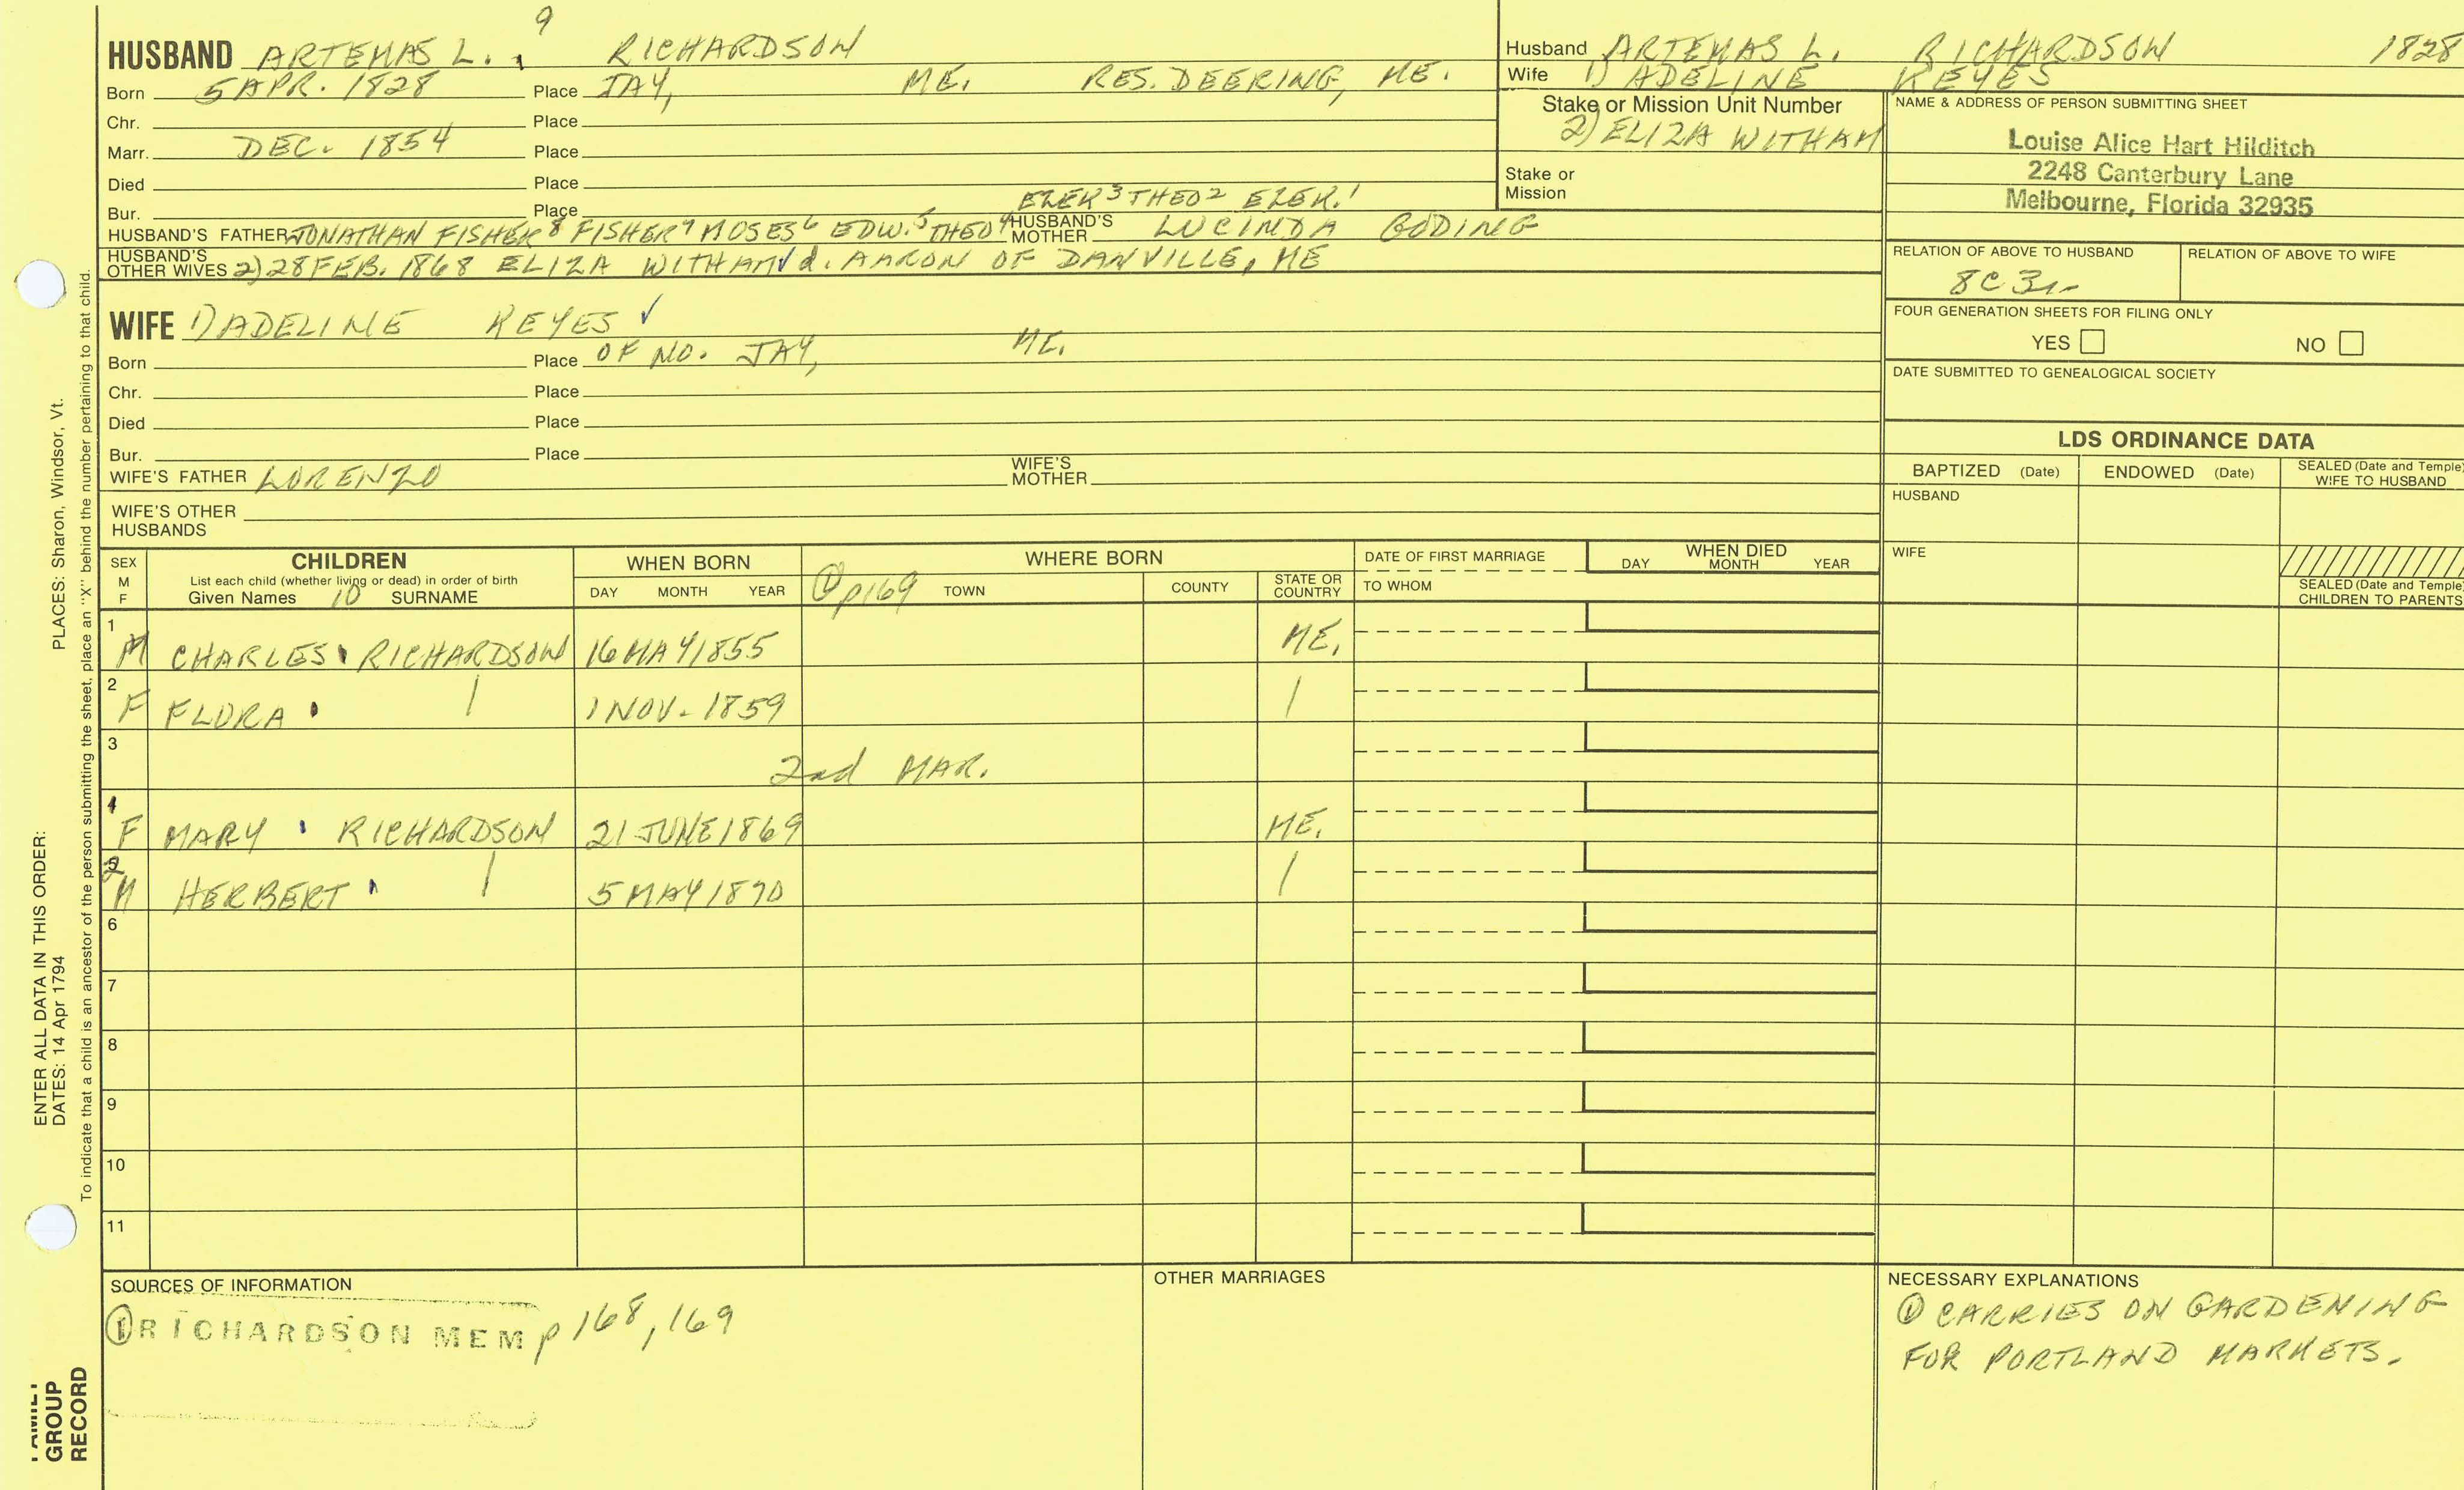 9
HUSBAND ARTEMAS L. RICHARDSON
Born 5 APR. 1828 Place JAY, ME. RES. DEERING, ME.
Chr. Place
Marr. DEC. 1854 Place
Died Place
Bur. Place
EZEK3 THEO2 EZEK.1
HUSBAND'S FATHER JONATHAN FISHER8 FISHER7 MOSES6 EDW.5 THEO4 HUSBAND'S MOTHER LUCINDA GODING
HUSBAND'S OTHER WIVES 2) 28 FEB. 1868 ELIZA WITHAM d. AARON OF DANVILLE, ME
WIFE 1) ADELINE KEYES ✓
Born Place OF NO. JAY, ME.
Chr. Place
Died Place
Bur. Place
WIFE'S FATHER LORENZO WIFE'S MOTHER
WIFE'S OTHER HUSBANDS
Husband ARTEMAS L. RICHARDSON 1828
Wife 1) ADELINE KEYES
Stake or Mission Unit Number
2) ELIZA WITHAM
Stake or Mission
NAME & ADDRESS OF PERSON SUBMITTING SHEET
Louise Alice Hart Hilditch
2248 Canterbury Lane
Melbourne, Florida 32935
RELATION OF ABOVE TO HUSBAND RELATION OF ABOVE TO WIFE
8C 3r
FOUR GENERATION SHEETS FOR FILING ONLY
YES NO
DATE SUBMITTED TO GENEALOGICAL SOCIETY
LDS ORDINANCE DATA
BAPTIZED (Date) ENDOWED (Date) SEALED (Date and Temple) WIFE TO HUSBAND
HUSBAND
WIFE
SEALED (Date and Temple) CHILDREN TO PARENTS
SEX M F
CHILDREN
List each child (whether living or dead) in order of birth
Given Names 10 SURNAME
WHEN BORN
DAY MONTH YEAR
WHERE BORN
① p169 TOWN COUNTY STATE OR COUNTRY
DATE OF FIRST MARRIAGE
TO WHOM
WHEN DIED
DAY MONTH YEAR
1 M CHARLES RICHARDSON 16 MAY 1855 ME.
2 F FLORA | 1 NOV. 1859 |
3 2nd MAR.
1 F MARY RICHARDSON 21 JUNE 1869 ME.
2 M HERBERT | 5 MAY 1870 |
6
7
8
9
10
11
SOURCES OF INFORMATION
① RICHARDSON MEM p 168, 169
OTHER MARRIAGES
NECESSARY EXPLANATIONS
① CARRIES ON GARDENING
FOR PORTLAND MARKETS.
ENTER ALL DATA IN THIS ORDER:
DATES: 14 Apr 1794
PLACES: Sharon, Windsor, Vt.
To indicate that a child is an ancestor of the person submitting the sheet, place an "X" behind the number pertaining to that child.
FAMILY
GROUP
RECORD